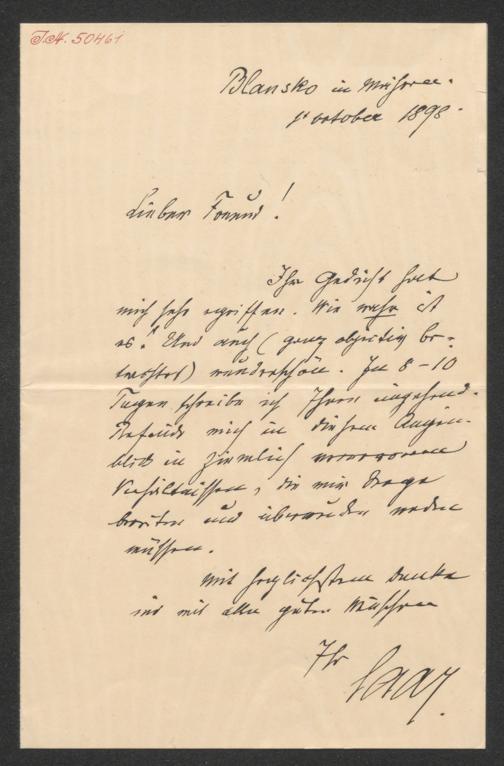 J.N. 50461
Blansko in Mähren.
1t october 1898.
Lieber Freund!
Ihr Gedicht hat
mich sehr ergriffen. Wie wahr ist
es! Und auch (ganz objectiv be-
trachtet) wunderschön. In 8-10
Tagen schreibe ich Ihnen eingehend.
Befinde mich in diesem Augen-
blick in ziemlich verworrenen
Verhältnissen, die mir Sorge
bereiten und überwunden werden
müssen.
Mit herzlichstem Danke
und mit allen guten Wünschen
Ihr
Saar.